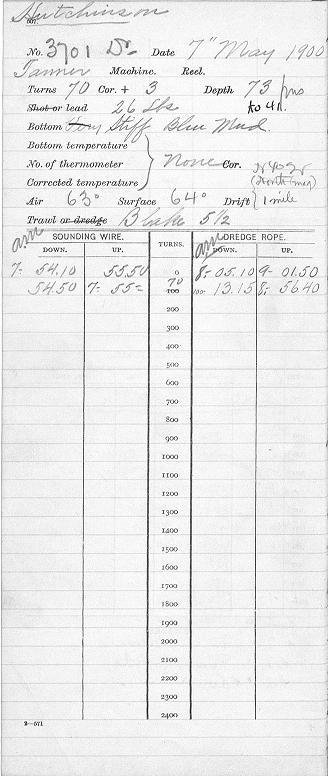 Hutchinson
No. 3701 Dr. Date 7" May 1900
Tanner Machine. Reel.
Turns 70 Cor. + 3 Depth 73 fms
Shot or lead 26 lbs to 41.
Bottom Stiff Blue Mud.
Bottom temperature
No. of thermometer None Cor.
Corrected temperature (North (mag)
Air 63° Surface 64° Drift 1 mile
Trawl or dredge Blake 5 1/2
am SOUNDING WIRE. TURNS. am DREDGE ROPE.
DOWN. UP. DOWN. UP.
7- 54.10 55.50 0 8- 05.10 9- 01.50
54.50 7- 55= 70 100 100- 13.15 8- 56.40
200
300
400
500
600
700
800
900
1000
1100
1200
1300
1400
1500
1600
1700
1800
1900
2000
2100
2200
2300
2400
2—571